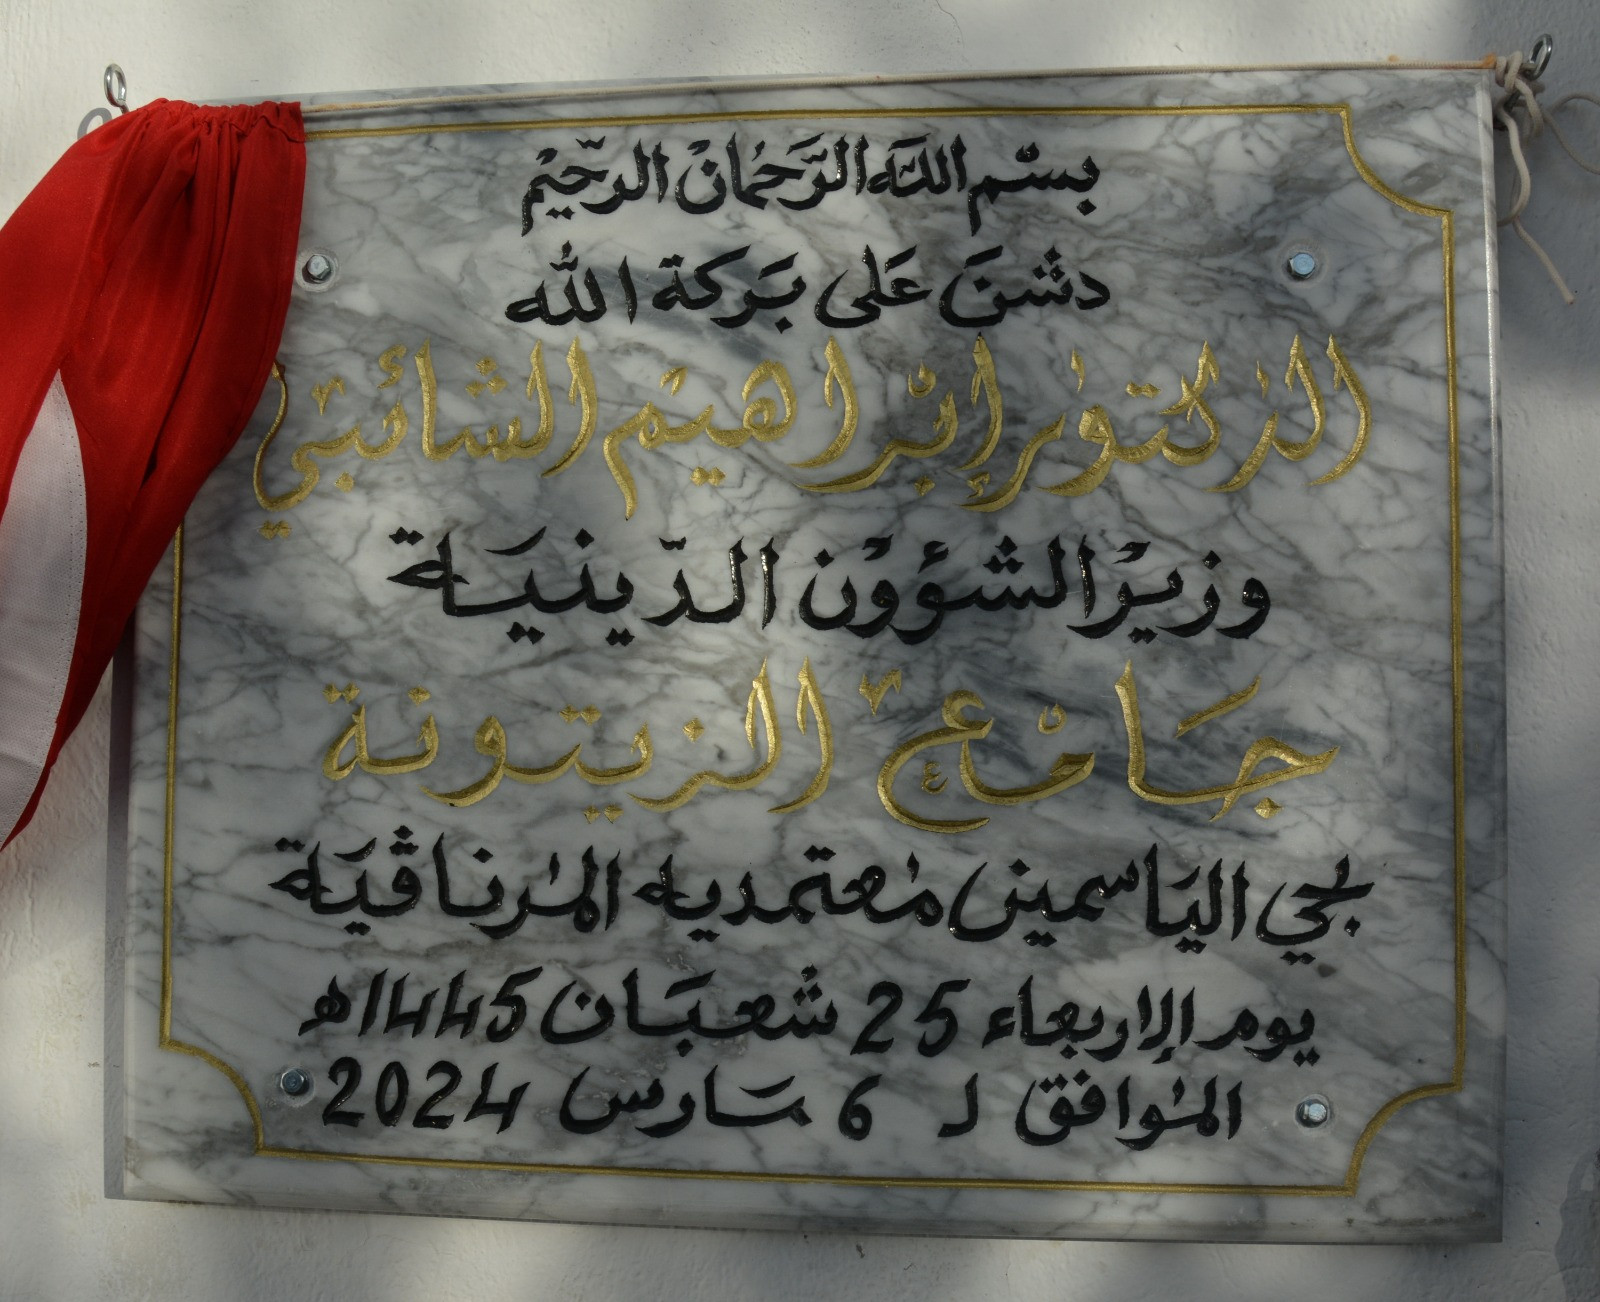 بسم الله الرحمان الرحيم
دشن على بركة الله
الدكتور إبراهيم الشائبي
وزير الشؤون الدينية
جامع الزيتونة
بحي الياسمين معتمدية المرناڤية
يوم الإربعاء 25 شعبان 1445هـ
الموافق لـ 6 مارس 2024